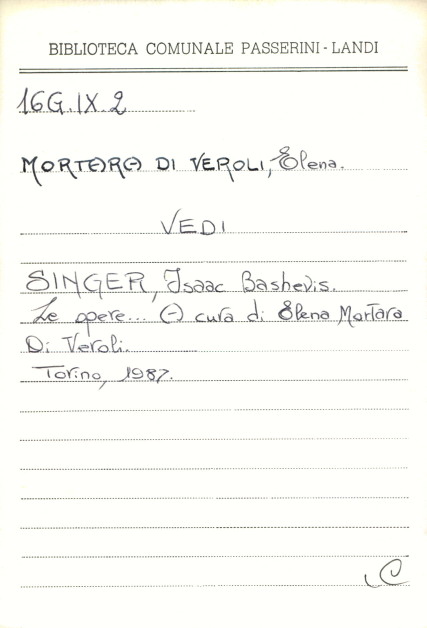 BIBLIOTECA COMUNALE PASSERINI - LANDI
16G.IX.2
MORTARA DI VEROLI, Elena.
VEDI
SINGER, Isaac Bashevis.
Le opere... A cura di Elena Mortara
Di Veroli.
Torino, 1987.
C